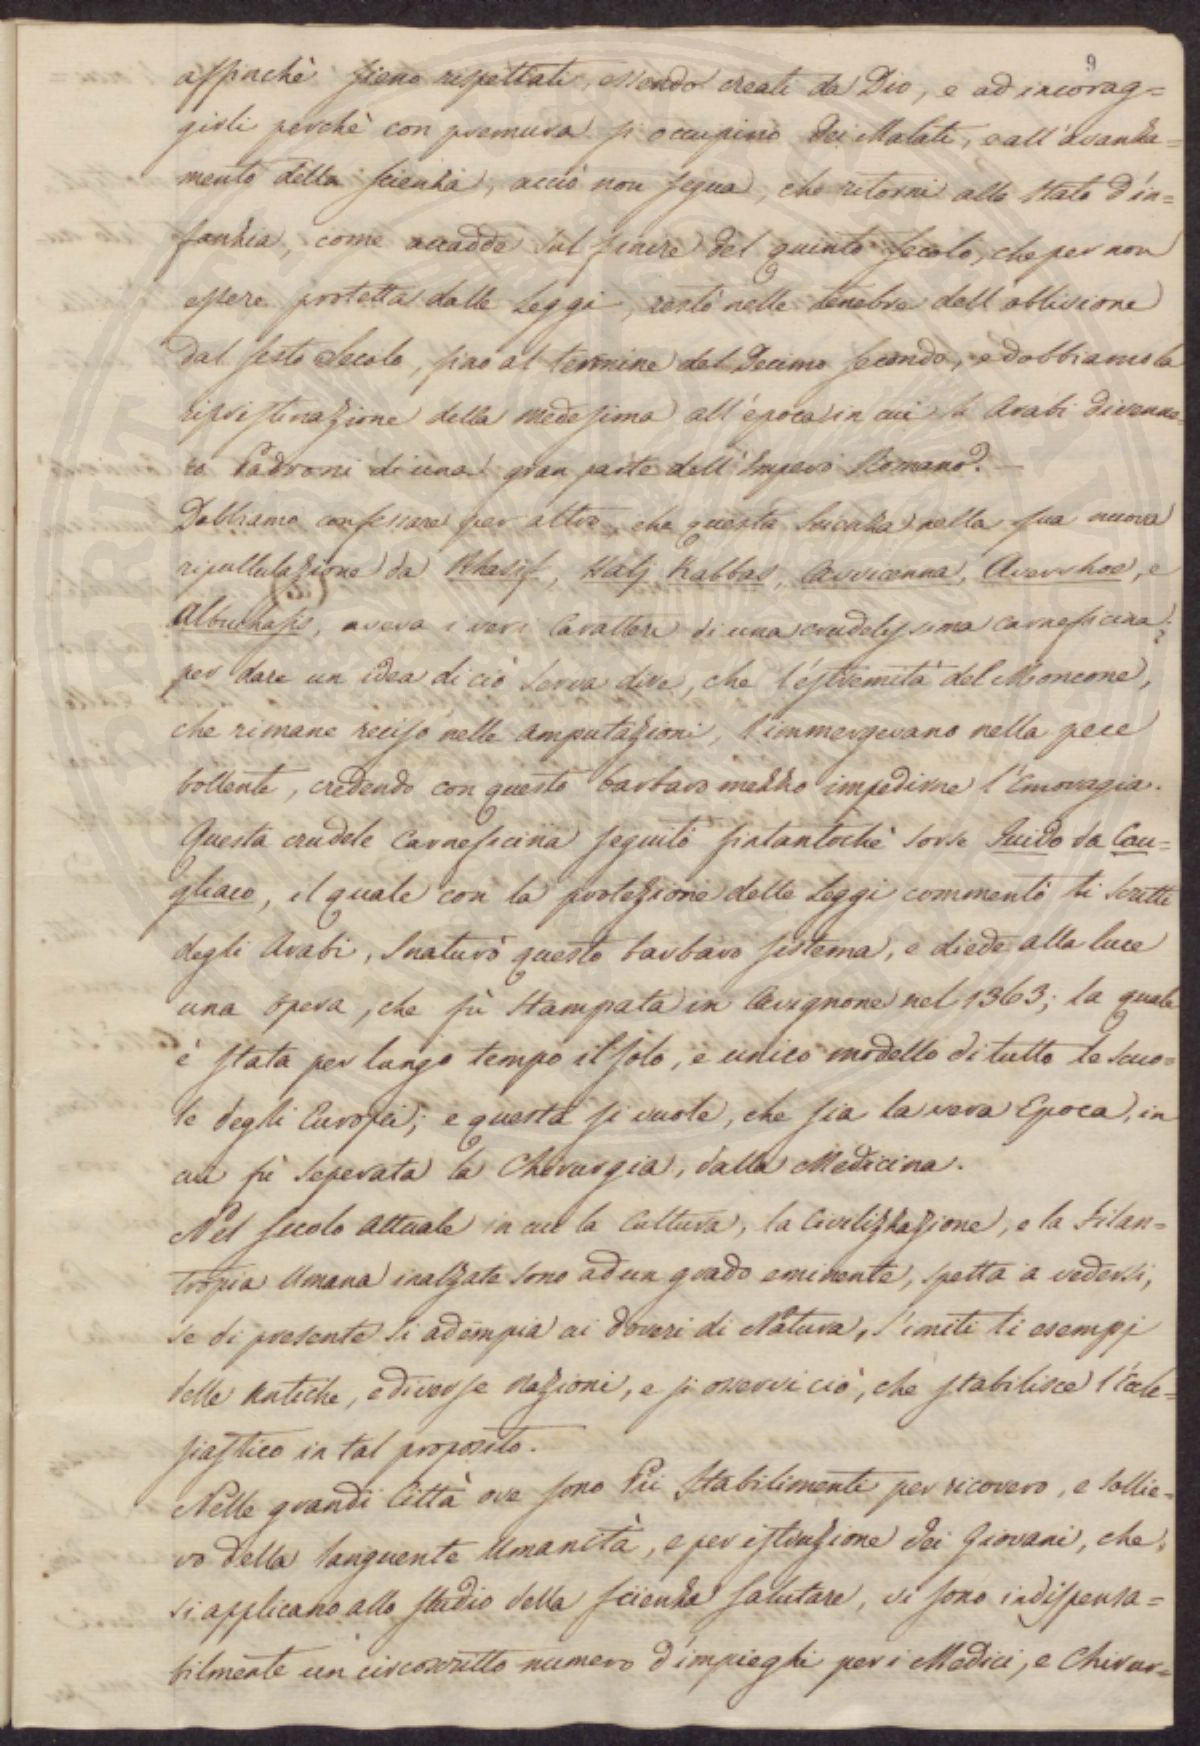 9
affinchè sieno rispettati, essendo creati da Dio, e ad incorag=
girli perchè con premura si occupino dei Malati, e all'avanza=
mento della scienza, acciò non segua, che ritorni allo stato d'in=
fanzia, come accadde sul finire del quinto secolo, che per non
essere protetta dalle Leggi, restò nelle tenebre dell'oblivione
dal sesto Secolo, fino al termine del Decimo secondo, e dobbiamo la
ripristinazione della medesima all'epoca in cui li Arabi divenne=
ro Padroni di una gran parte dell'Impero Romano. —
Dobbiamo confessare per altro, che questa Scienza nella sua nuova
ripullulazione da Rhasis, Halj Habbas, Avvicenna, Averrhoe, e
(3.)
Albuchasis, aveva i veri Caratteri di una crudelissima carneficina;
per dare un idea di ciò serva dire, che l'estremità del Moncone,
che rimane reciso nelle amputazioni, l'immergevano nella pece
bollente, credendo con questo barbaro mezzo impedirne l'Emoragia.
Questa crudele Carneficina seguitò fintantochè sorse Guido da Cau=
gliaco, il quale con la protezione delle Leggi commentò li Scritti
degli Arabi, snaturò questo barbaro sistema, e diede alla luce
una opera, che fù stampata in Avignone nel 1363; la quale
è stata per lungo tempo il solo, e unico modello di tutte le scuo=
le degli Europei; e questa si vuole, che sia la vera Epoca, in
cui fù seperata la Chirurgia, dalla Medicina.
Nel secolo attuale in cui la Cultura, la Civilizzazione, e la Filan=
tropia Umana inalzate sono ad un grado eminente, spetta a vedersi,
se di presente si adempia ai doveri di Natura, s'imiti li esempj
delle Antiche, e diverse Nazioni, e si osservi ciò, che stabilisce l'Ecle=
siastico in tal proposito.
Nelle grandi Città ove sono Pii stabilimenti per ricovero, e sollie=
vo della languente Umanità, e per istruzione dei Giovani, che
si applicano allo studio della scienza salutare, vi sono indispensa=
bilmente un circoscritto numero d'impieghi per i Medici, e Chirur=